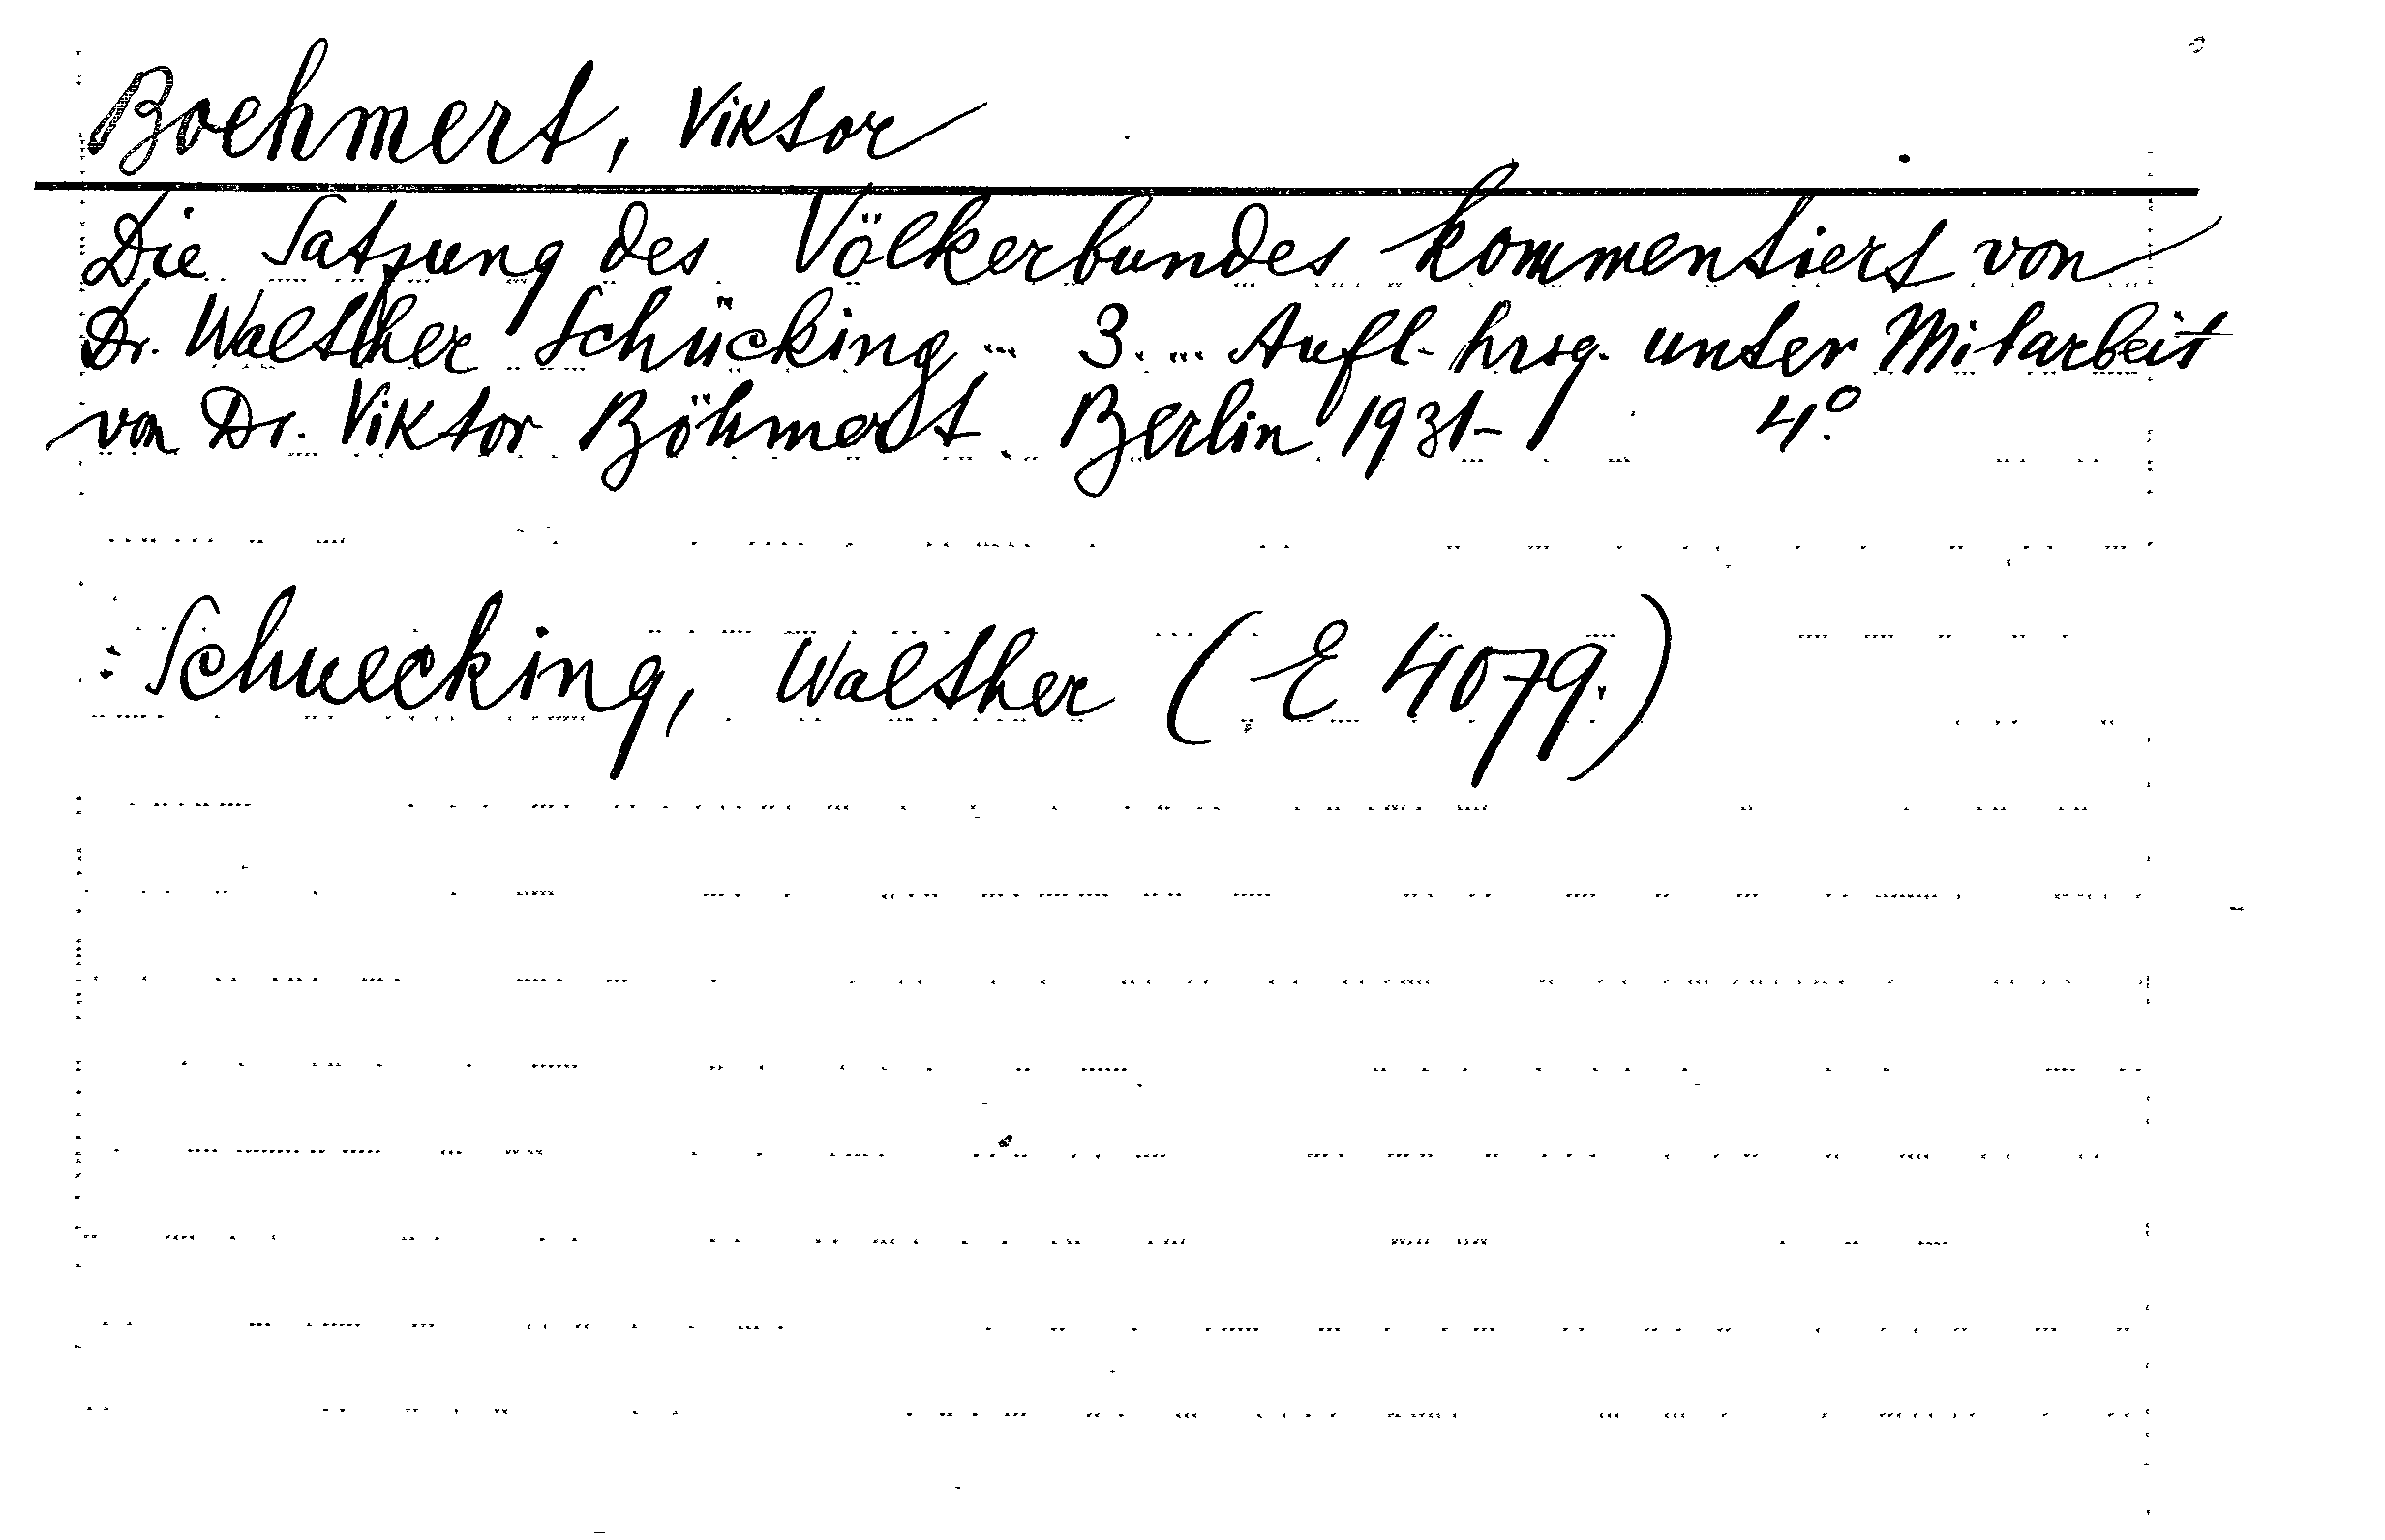 Boehmert, Viktor
Die Satzung des Völkerbundes kommentiert von
Dr. Walther Schücking ... 3. ... Aufl. hrsg. unter Mitarbeit
von Dr. Viktor Böhmert Berlin 1931- 4°.
: Schuecking, Walther (E 4079.)